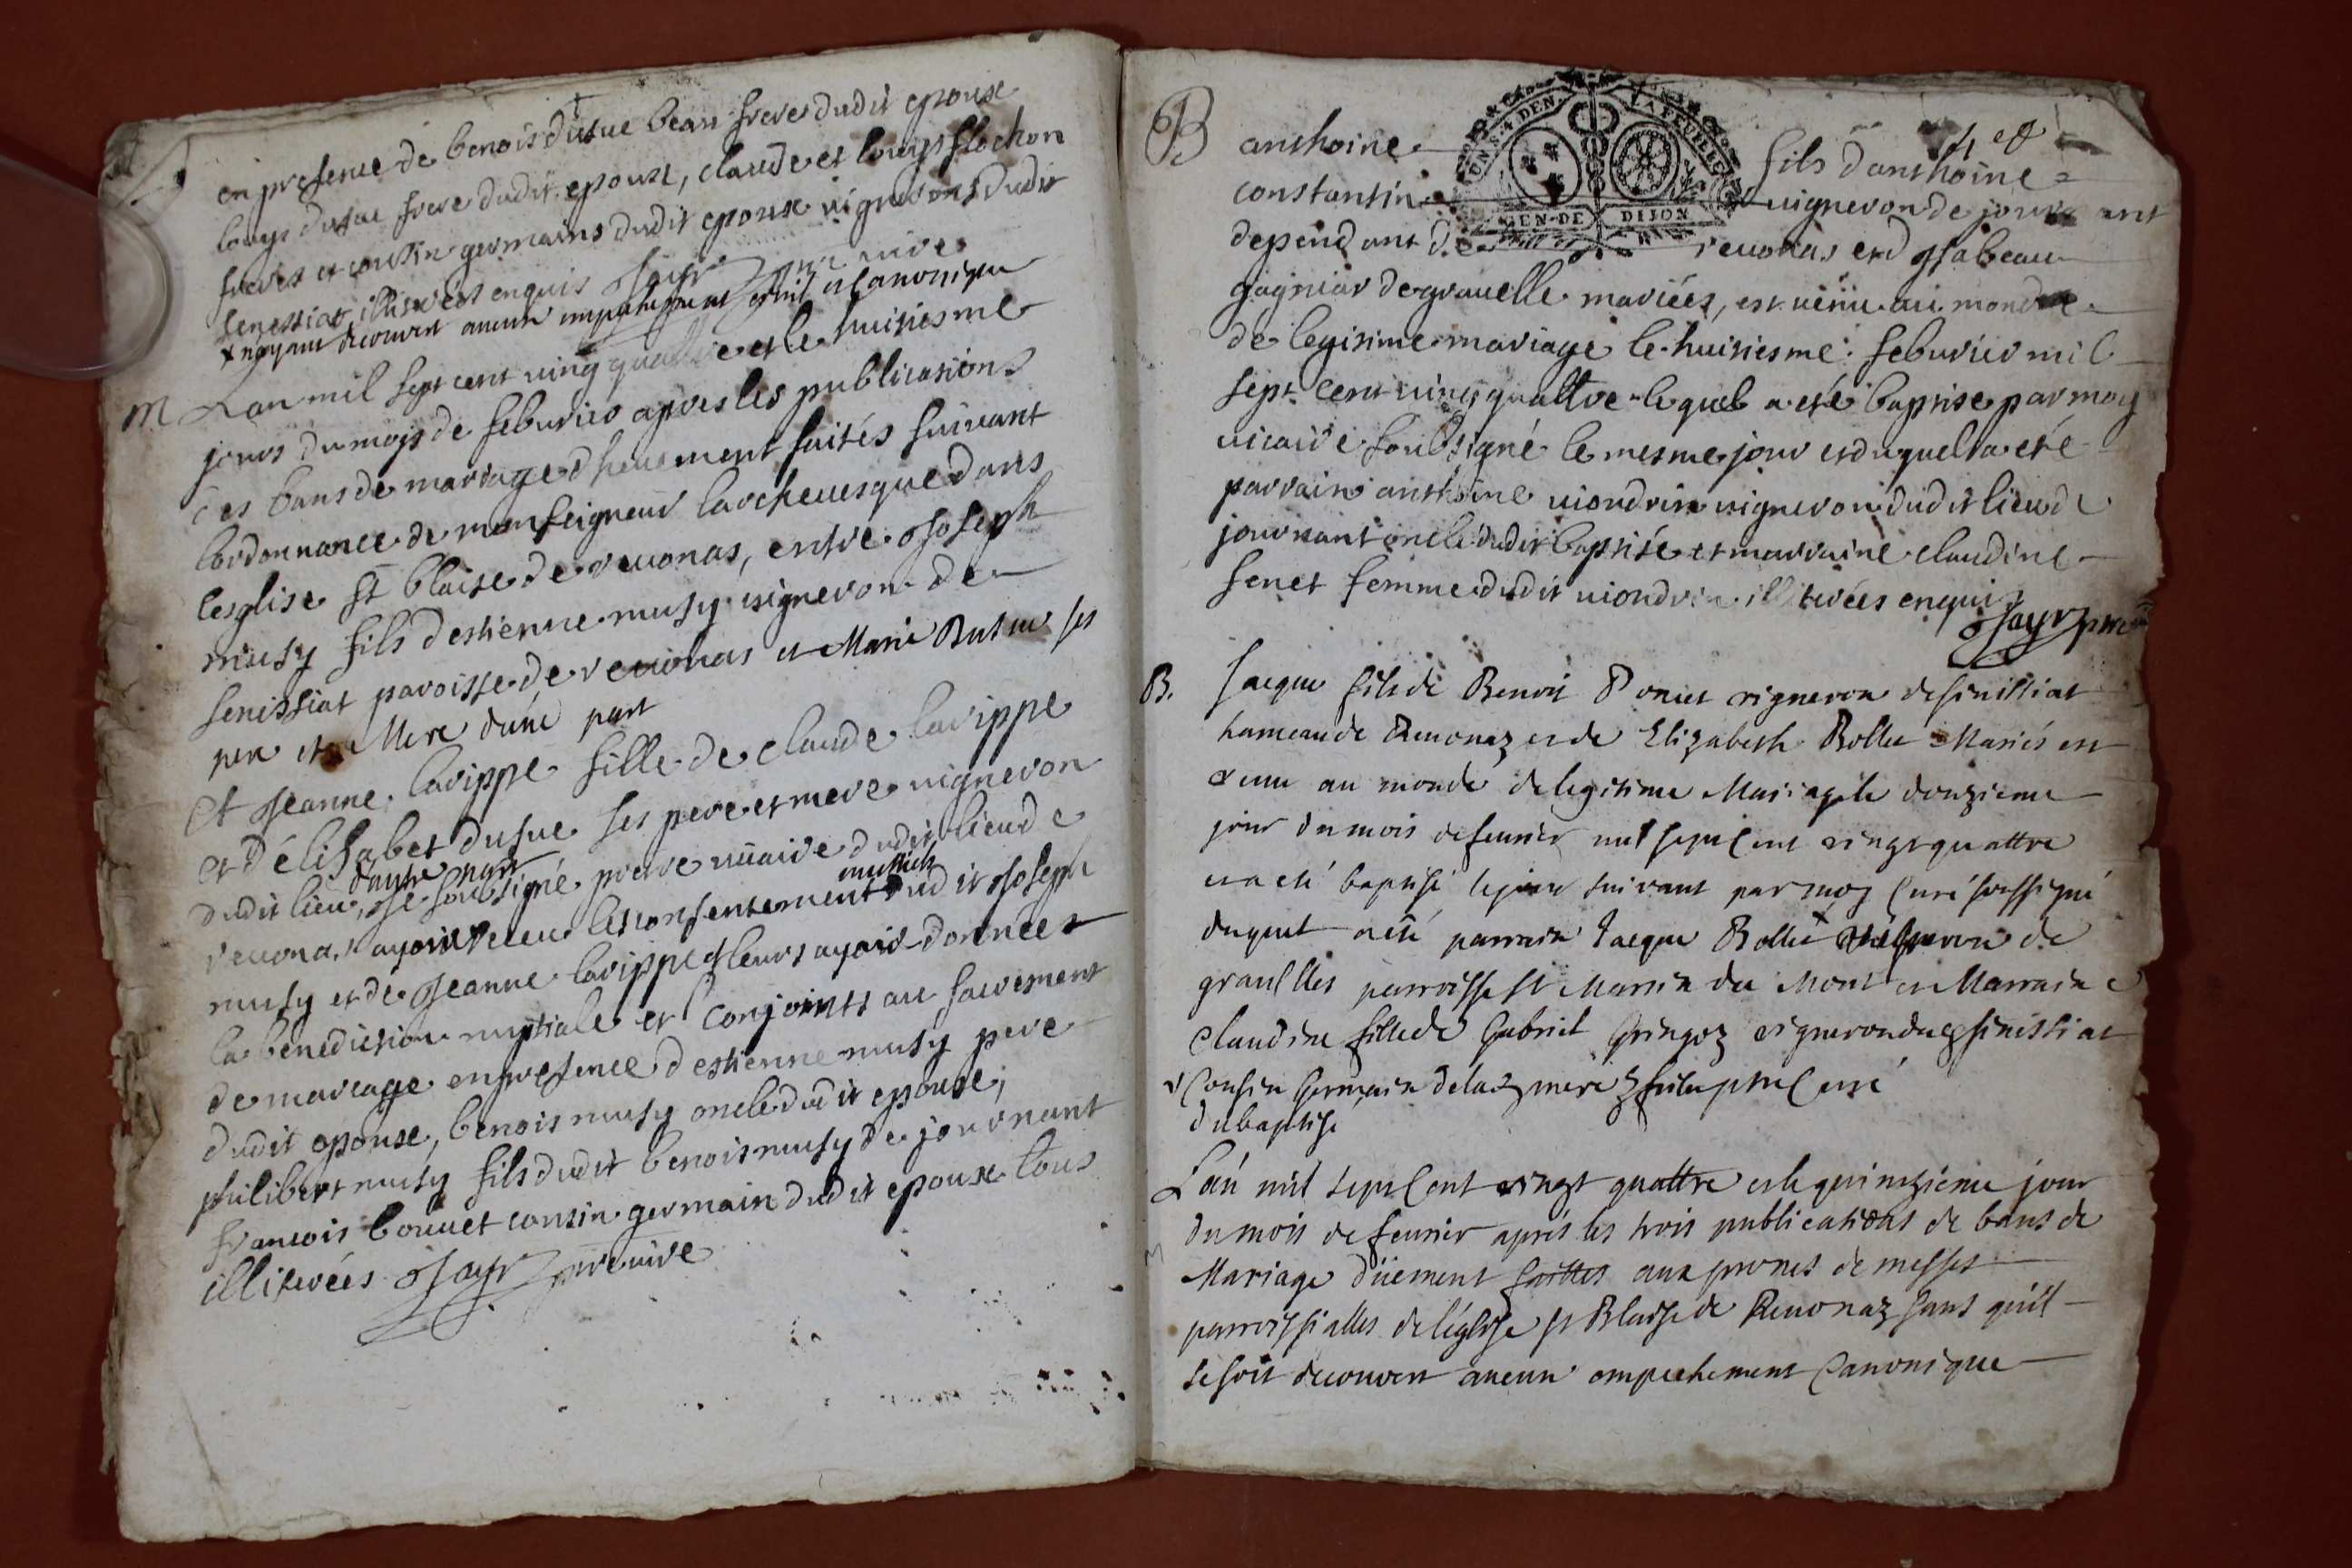 en presence de benois dusue beau frere dudit epoux
louys dusue frere dudit epoux, claude et louys flochon
freres et cousin germains dudit epoux vignerons dudit
senessiat illiterées enquis Jayr prvivre
+ n'ayant decouvert aucun empechement civil ni canonique
M Lan mil sept cent ving quattre et le huitiesme
jours du mojs de feburier apres les publications
des bans de mariage dheuement faités suivant
lordonnance de monseigneur larcheuesque dans
lesglise st blaise de reuonas, entre Joseph
musy fils destienne musy vigneron de
senissiat paroisse de reuonas et Marie Dusue ses
pere et Mere dune part
Et Jeanne lavippe fille de claude lavippe
et délisabet dusue ses pere et mere vigneron
dudit lieu, dautre part Je soubsigné prevre vicaire dudit lieu de
reuonas, ayoir receu le consentement mutuel dudit Joseph
musy et de Jeanne lavippe et leurs ayoir données
la benediction nuptiale et conjoints au sacrement
de mariage en presence d'estienne musy pere
dudit epouse, benois musy oncle dudit epouse,
philibert musy fils dudit benois musy de journant
francois bouuet cousin germain dudit epoux tous
illiterées Jayr prvivre
4 e
B anthoine fils danthoine
constantin vigneron de journant
dependant de reuonas et d Jsabeau
gagniar de grauelle mariées, est vénu au monde
de legitime mariage le huitiesme feburier mil
sept cent ving quattre lequel a eté baptise par moy
vicaire soubsigné le mesme jour et duquel a eté
parrain anthoine viondrin vigneron dudit lieu de
journant oncle dudit baptisé et marraine claudine
fenet femme dudit viondrin illiterées enquis
Jayr prvi
UN.S.4.DEN. LA FEUILLE
GEN.DE DIJON
B. Jacque fils de Benoit Poncet vigneron de sinissiat
hameau de Reuonaz et de Elizabeth Rollet Mariés est
venu au monde de legitime Mariage le douzieme
jour du mois de feurier mil sept Cent vingt quattre
et a eté baptisé le jour suivant par moy Curé soussigné
duquel a eté parrain Jacque Rollet + vigneron de
grauelles parroisse st Martin du Mont et Marraine
Claudine fille de Gabriel Gringoz vigneron du sinissiat
+ Cousin Germain de la mere ptre Curé
du baptisé
M L'an mil sept Cent vingt quattre et le quinzieme jour
du mois de feurier aprés les trois publications de bans de
Mariage düement faittes aux prones de messes
parroissialles de l'église st Blaise de Reuonaz sans qu'il
se soit decouvert aucun empechement Canonique